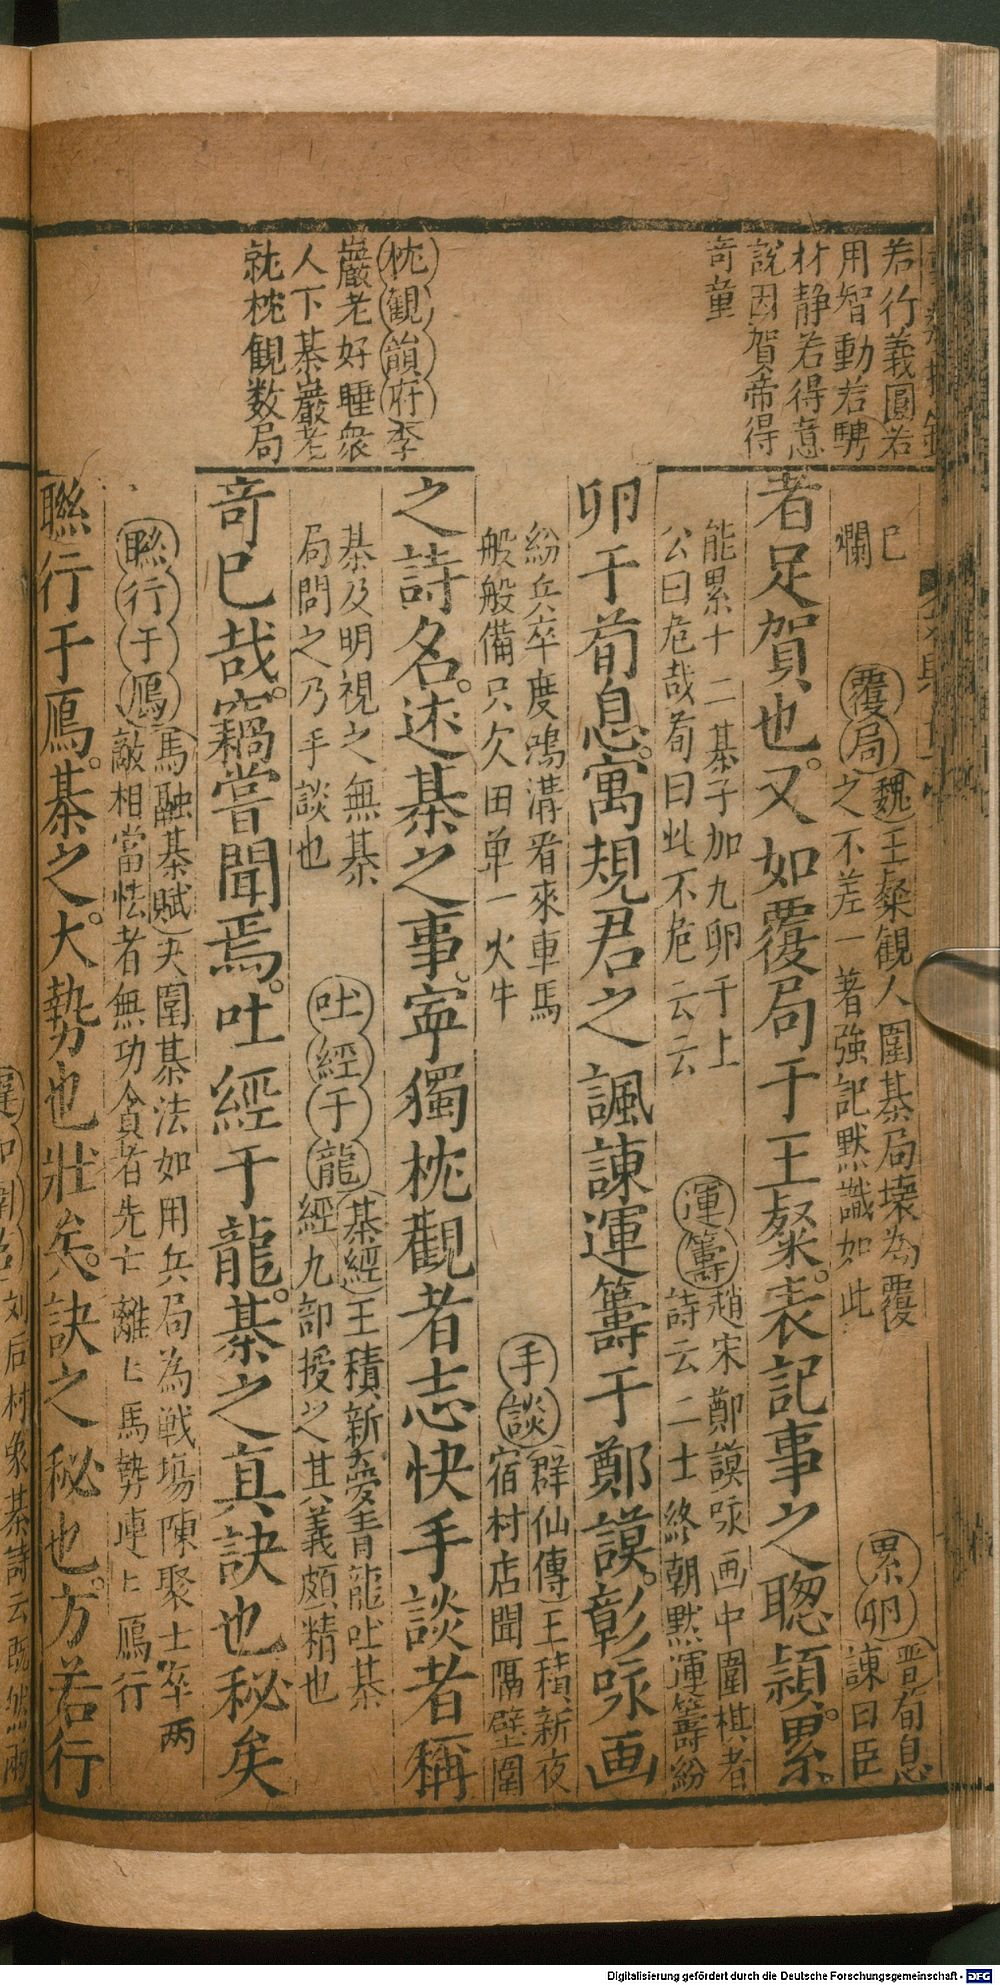 若行義圓若
用智動若騁
材静若得意
說因賀帝得
奇童
枕観𡹐府李
巖老好睡衆
人下棊巖老
就枕観数局
巳
爛
覆局魏王粲観人圍棊局壊為覆
之不差一著強記黙識如此
累卵晋荀息
諫曰臣
者足賀也又如覆局于王粲表記事之聦頴累
能累十二棊子加九卵于上
公曰危哉荀曰此不危云云
運籌趙宋鄭謨咏画中圍棋者
詩云二士終朝黙運籌紛
卵于荀息寓規君之諷諫運籌于鄭謨彰咏画
紛兵卒度鴻溝看來車馬
般般備只欠田单一火牛
手談群仙傳王積新夜
宿村店聞隔壁圍
之詩名述棊之事寕獨枕觀者志快手談者稱
棊及明視之無棊
局問之乃手談也
吐經于龍棊經王積新夢青龍吐棊
經九部授之其義頗精也
奇巳哉竊嘗聞焉吐經于龍棊之真訣也秘矣
聮行于鴈馬融棊賦夫圍棊法如用兵局為戦場陳聚士卒两
敵相當怯者無功貪者先亡離〻馬勢連〻鴈行
聮行于鴈棊之大勢也壯矣訣之秘也方若行
刘后村象棊詩云既然兩
Digitalisierung gefördert durch die Deutsche Forschungsgemeinschaft - DFG